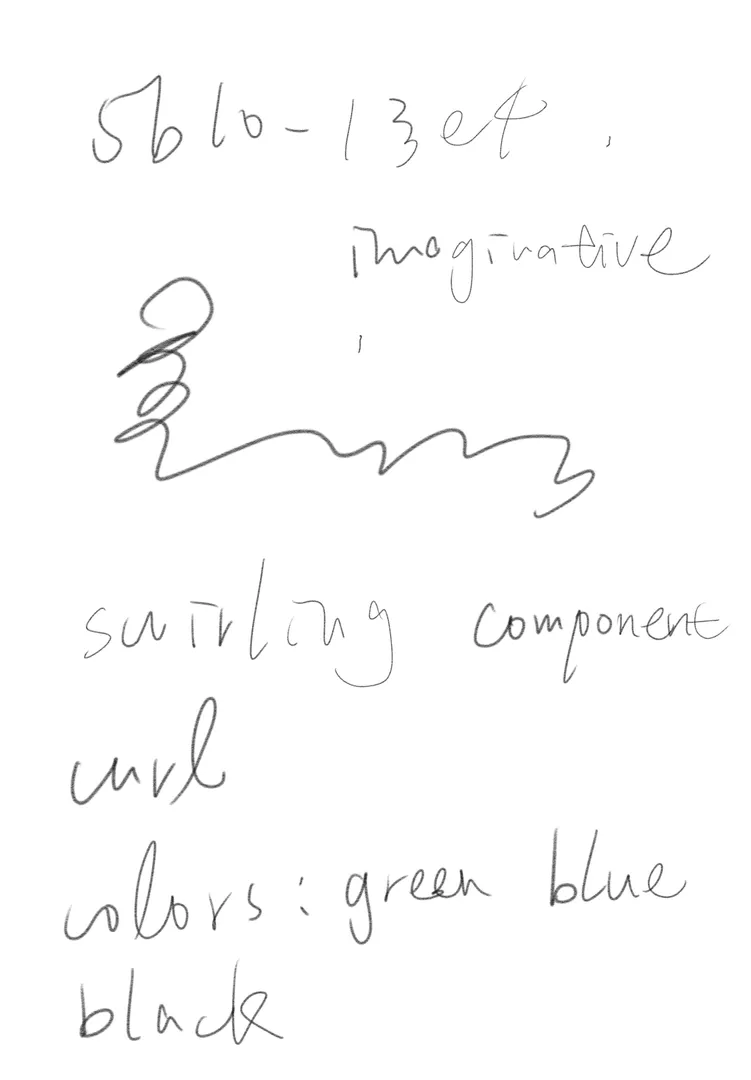 5b10-13et.
imaginative
swirling component
curl
colors: green blue
black